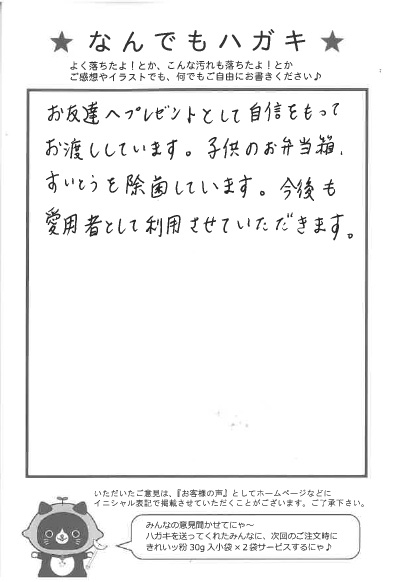 ★ なんでもハガキ ★
よく落ちたよ！とか、こんな汚れも落ちたよ！とか
ご感想やイラストでも、何でもご自由にお書きください♪
お友達へプレゼントとして自信をもって
お渡ししています。子供のお弁当箱、
すいとうを除菌しています。今後も
愛用者として利用させていただきます。
いただいたご意見は、『お客様の声』としてホームページなどに
イニシャル表記で掲載させていただくことがございます。ご了承下さい。
みんなの意見聞かせてにゃ～
ハガキを送ってくれたみんなに、次回のご注文時に
きれいッ粉 30g 入小袋×２袋サービスするにゃ♪